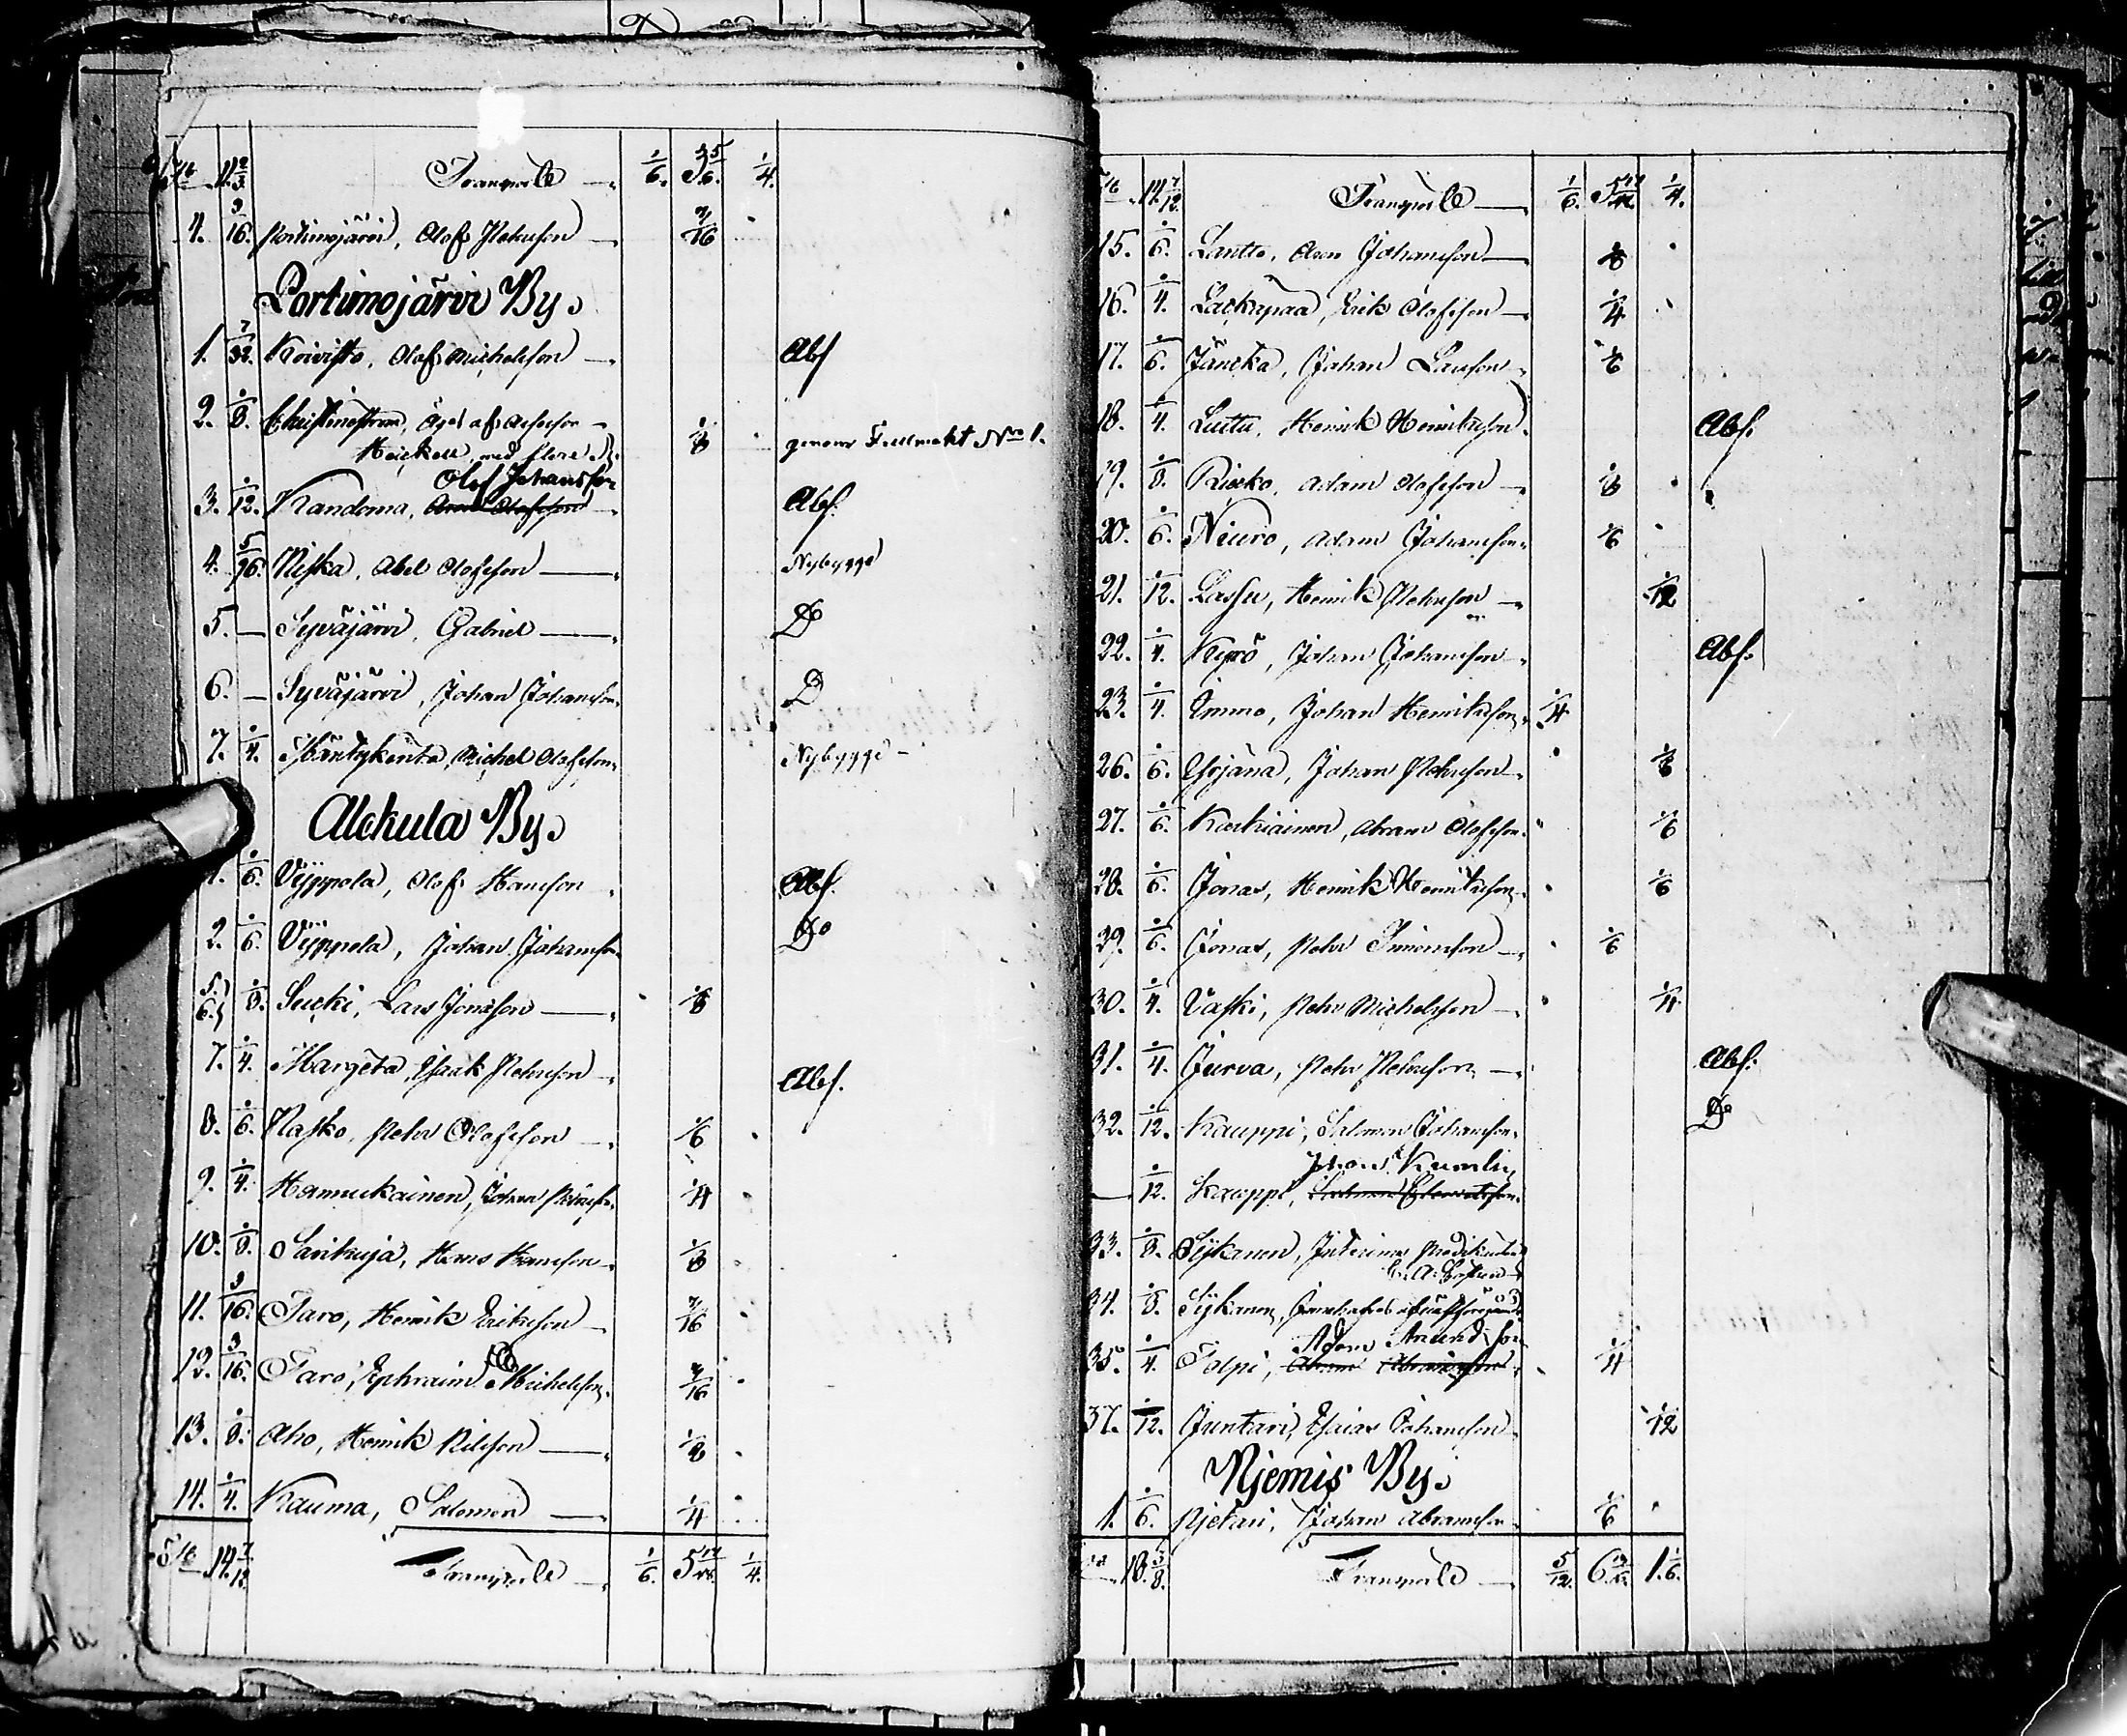 11 2/3 Transport 1/6. 3 5/6. 1/4.
4. 3/16. Portimojärvi, Olof Pehrsson 3/16
Portimojärvi By.
1. 7/32. Koivisto, Olof Michelsson Abs
2. 1/8. Christineström, Äges af Assessor 1/8 genom Fullmakt No 1.
Heickell, med flere
Olof Johansson
3. 1/12. Kandoma, Abs.
4. 5/96. Niska, Abel Olofsson Nybygge
5. — Syväjärvi, Gabriel Do
6. — Syväjärvi, Johan Johansson D
7. 1/4. Mäntykenta, Michel Olofsson Nybygge
Alckula By.
1. 1/6. Vyppola, Olof Hansson Abs.
2. 1/6. Vyppola, Johan Johansson Do
5. 6. 1/8. Sucki, Lars Jonsson 1/8
7. 1/4. Margeta, Isak Pehrsson Abs.
8. 1/6. Rasko, Pehr Olofsson 1/6
9. 1/4. Hannukainen, Johan Pehrsson 1/4
10. 1/8. Sarikuja, Hans Hansson 1/8
11. 3/16. Taro, Henrik Eriksson 3/16
12. 3/16. Taro, Ephraim Michelsson 3/16
13. 1/8. Aho, Henrik Nilsson 1/8
14. 1/4. Kauma, Salomon 1/4
14 7/12 Transport 1/6. 5 1/4.
14 7/12. Transport 1/6. 5 1/4.
15. 1/6. Lantto, Aron Johansson 1/6
16. 1/4. Lackapaa, Erik Olofsson 1/4
17. 1/6. Jäncka, Johan Larsson 1/6
18. 1/4. Luttu, Henrik Henriksson Abs.
19. 1/8. Riecko, Adam Olofsson 1/8
20. 1/6. Niuro, Adam Johansson 1/6
21. 1/12. Lassu, Henrik Pehrsson 1/12
22. 1/4. Kyrö, Johan Johansson Abs.
23. 1/4. Immo, Johan Henriksson 1/4
26. 1/6. Johan Pehrsson 1/6
27. 1/6. Kurkiainen, Abram Olofsson 1/6
28. 1/6. Jonas, Henrik Henriksson 1/6
29. 1/6. Jonas, Pehr Simonsson 1/6
30. 1/4. Vaski, Pehr Michelsson 1/4
31. 1/4. Jurva, Pehr Pehrsson Abs.
32. 1/12. Kauppi, Salomon Johansson Do
Johan Kumlin
— 1/12. Kauppi,
33. 1/8. Sykanen, Interims Predikant
34. 1/8. Sykanen,
Adam Amundsson
35. 1/4. Tolpi, 1/4
37. 1/12. Juntari, Esaias Johansson 1/12
Njemis By.
1. 1/6. Njetari, Johan Abramsson 1/6
18 3/8. Transport 5/12. 6 1. 1/6.